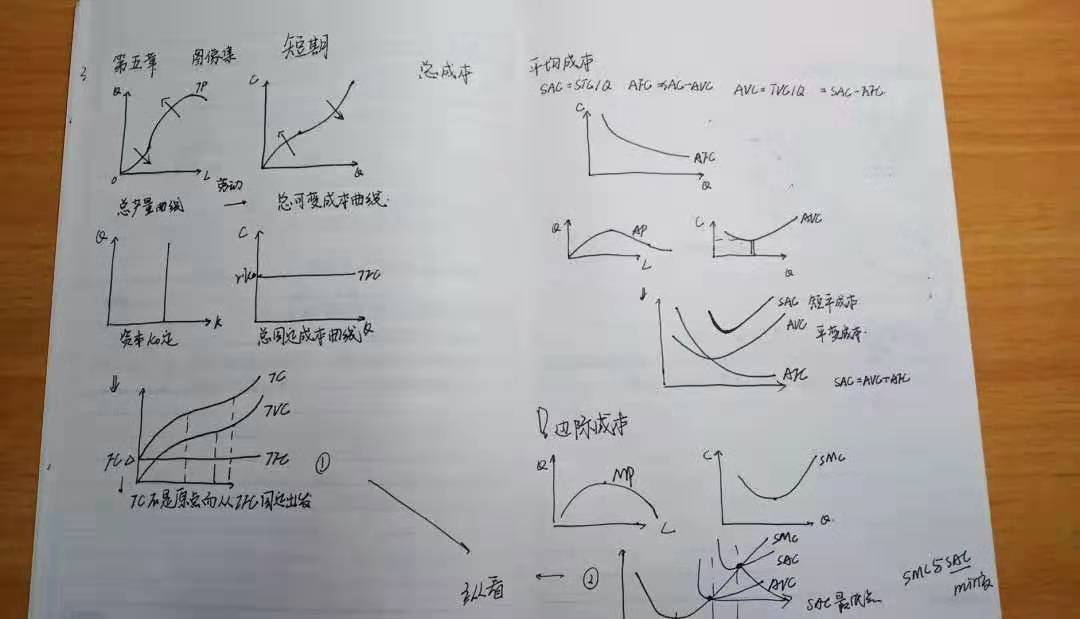 第五章 图像集 短期
Q
TP
O
L
总产量曲线
劳动
C
Q
总可变成本曲线
Q
K
资本K固定
C
TFC
Q
总固定成本曲线
TC
TVC
TFC
①
TC不是原点而从TFC固定出发
总成本
平均成本
SAC=STC/Q AFC=SAC-AVC AVC=TVC/Q =SAC-AFC
C
AFC
Q
Q
AP
L
C
AVC
Q
SAC 短平成本
AVC 平变成本
AFC
SAC=AVC+AFC
边际成本
Q
MP
L
C
SMC
Q
SMC
SAC
AVC
SAC最低点
SMC与SAC
min
纵看
②